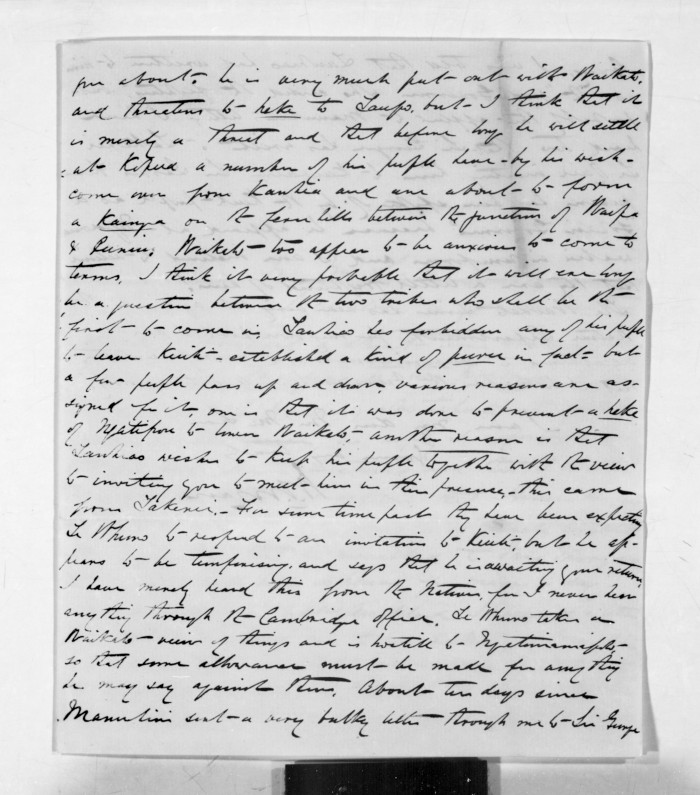 about. he is very much put out with Waikato.
and threatens to heke to Taupo. but I think that it
is merely a threat and that before long he will settle
at Kopua a number of his people have by his wish
come over from Kawhia and are about to form
a Kainga on the fern hills between the junction of Waipa
& Puniu. Waikato too appear to be anxious to come to
terms. I think it very probable that it will ere long
be a question between the two tribes who shall be the
first to come in. Tawhiao has forbidden any of his people
to leave Kuiti established a kind of in fact but
a few people pass up and down, various reasons are as-
signed for it, one is that it was done to prevent a heke
of Ngatipou to lower Waikato another reason is that
Tawhiao wishes to keep his people together with the view
to inviting you to meet him in their presence. this came
from Takerei. For some time past they have been expecting
Te Whuoro to respond to an invitation to Kuiti, but he ap-
pears to be temporising, and says that he is awaiting your return
I have merely heard this from the Natives, for I never hear
anything through the Cambridge Officer. Te Whuoro takes a
Waikato view of things and is hostile to Ngatimaniapoto
so that some allowance must be made for anything
he may say against them. About ten days since
Manuhiri sent a very bulky letter through me to Sir George